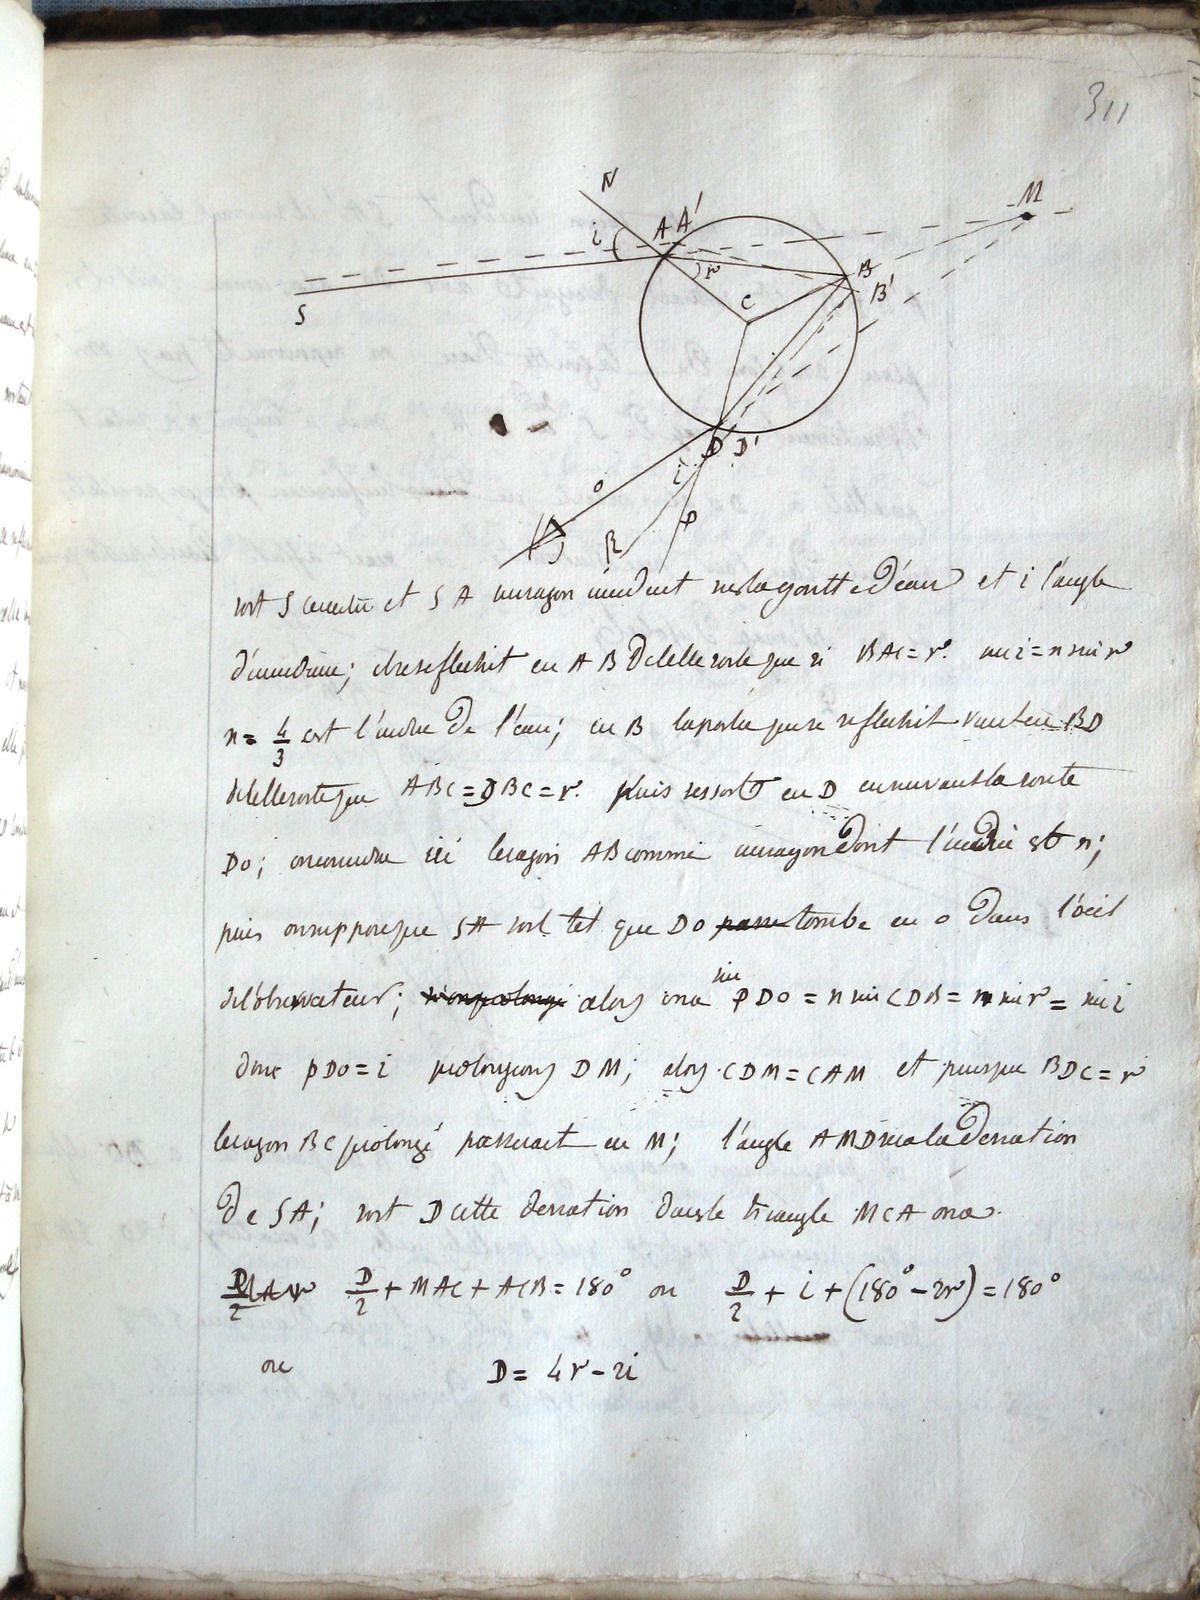 311
N
M
i
A A'
r
B
B'
C
S
D D'
i
O
P
R
soit S le centre et SA un rayon incident sur la goutte d'eau et i l'angle
d'incidence; il se réfléchit en AB de telle sorte que si BAC = r. sin i = n sin r
n = 4/3 est l'indice de l'eau; en B la partie qui se réfléchit vient en BD
de telle sorte que ABC = DBC = r. puis ressort en D en suivant la route
DO; on considère ici le rayon AB comme un rayon dont l'indice est n;
puis on suppose que SA soit tel que DO passe tombe en O dans l'œil
de l'observateur; si on prolonge alors on a sin PDO = n sin CDB = n sin r = sin i
donc PDO = i prolongeons DM; alors CDM = CAM et puisque BDC = r
le rayon BC prolongé passerait en M; l'angle AMD sera la déviation
de SA; soit D cette déviation dans le triangle MCA on a
D/2 D/2 + MAC + ACB = 180° ou D/2 + i + (180° - 2r) = 180°
ou D = 4r - 2i